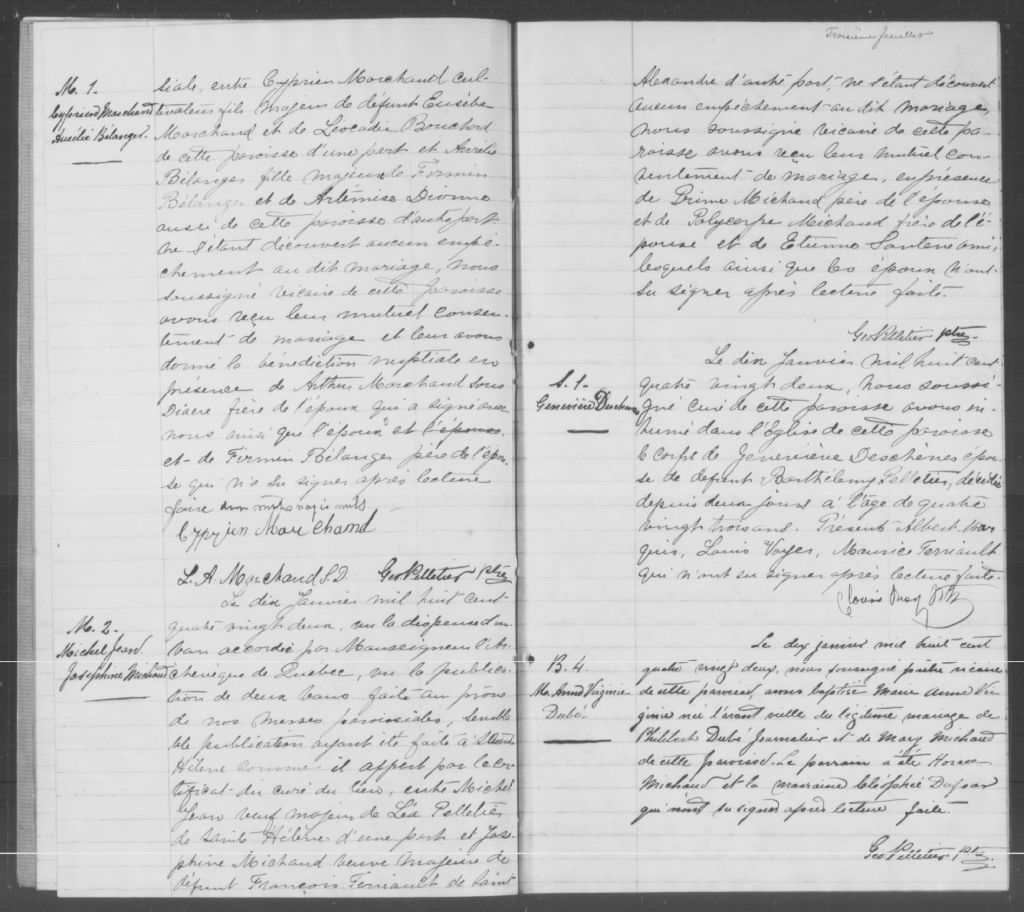 M. 1.
Cyprien Marchand
Aurélie Bélanger.
siale, entre Cyprien Marchand cul-
tivateur fils majeur de défunt Eusèbe
Marchand et de Léocadie Bouchard
de cette paroisse d'une part et Aurélie
Bélanger fille majeure de Firmin
Bélanger et de Artémise Dionne
aussi de cette paroisse d'autre part
ne s'étant découvert aucun empê-
chement au dit mariage, Nous
soussigné vicaire de cette paroisse
avons reçu leur mutuel consen-
tement de mariage et leur avons
donné la bénédiction nuptiale en
présence de Arthur Marchand Sous
Diacre frère de l'époux qui a signé avec
nous ainsi que l'époux et l'épouse,
et de Firmin Bélanger père de l'épou-
se qui n'a su signer après lecture
faite
Cyprien Marchand
L. A. Marchand S.D. Geo Pelletier ptre
M. 2.
Michel Jean
Josephine Michaud
Le dix Janvier mil huit cent
quatre vingt deux, vu la dispense d'un
ban accordée par Monseigneur l'Ar-
chevêque de Québec, vu la publica-
tion de deux bans faite au prône
de nos messes paroissiales, sembla-
ble publication ayant été faite à Sainte
Hélène comme il appert par le cer-
tificat du curé du lieu, entre Michel
Jean veuf majeur de Léa Pelletier
de Sainte Hélène d'une part et José-
phine Michaud veuve majeure de
défunt François Terriault de Saint
Troisième feuillet
Alexandre d'autre part, ne s'étant découvert
aucun empêchement au dit mariage
nous soussigné vicaire de cette pa-
roisse avons reçu leur mutuel con-
sentement de mariage, en présence
de Prime Michaud père de l'épouse
et de Polycarpe Michaud frère de l'é-
pouse et de Etienne ami,
lesquels ainsi que les époux n'ont
su signer après lecture faite.
Geo Pelletier ptre
S. 1.
Geneviève Deschenes
Le dix Janvier mil huit cent
quatre vingt deux, Nous soussi-
gné curé de cette paroisse avons in-
humé dans l'Eglise de cette paroisse
le corps de Geneviève Deschenes épou-
se de defunt Barthélemy Pelletier, décédée
depuis deux jours à l'âge de quatre
vingt trois ans. Présent Albert Mar-
quis, Louis Voyer, Maurice Terriault
qui n'ont su signer après lecture faite.
B. 4.
M. Anne Virginie
Dubé
Le dix janvier mil huit cent
quatre vingt deux, nous soussigné prêtre vicaire
de cette paroisse, avons baptisé Marie Anne Vir-
ginie née l'avant veille du légitime mariage de
Philibert Dubé Journalier et de Mary Michaud
de cette paroisse. Le parrain a été Horace
Michaud et la marraine Cléophée
qui n'ont su signer après lecture faite.
Geo. Pelletier Ptre